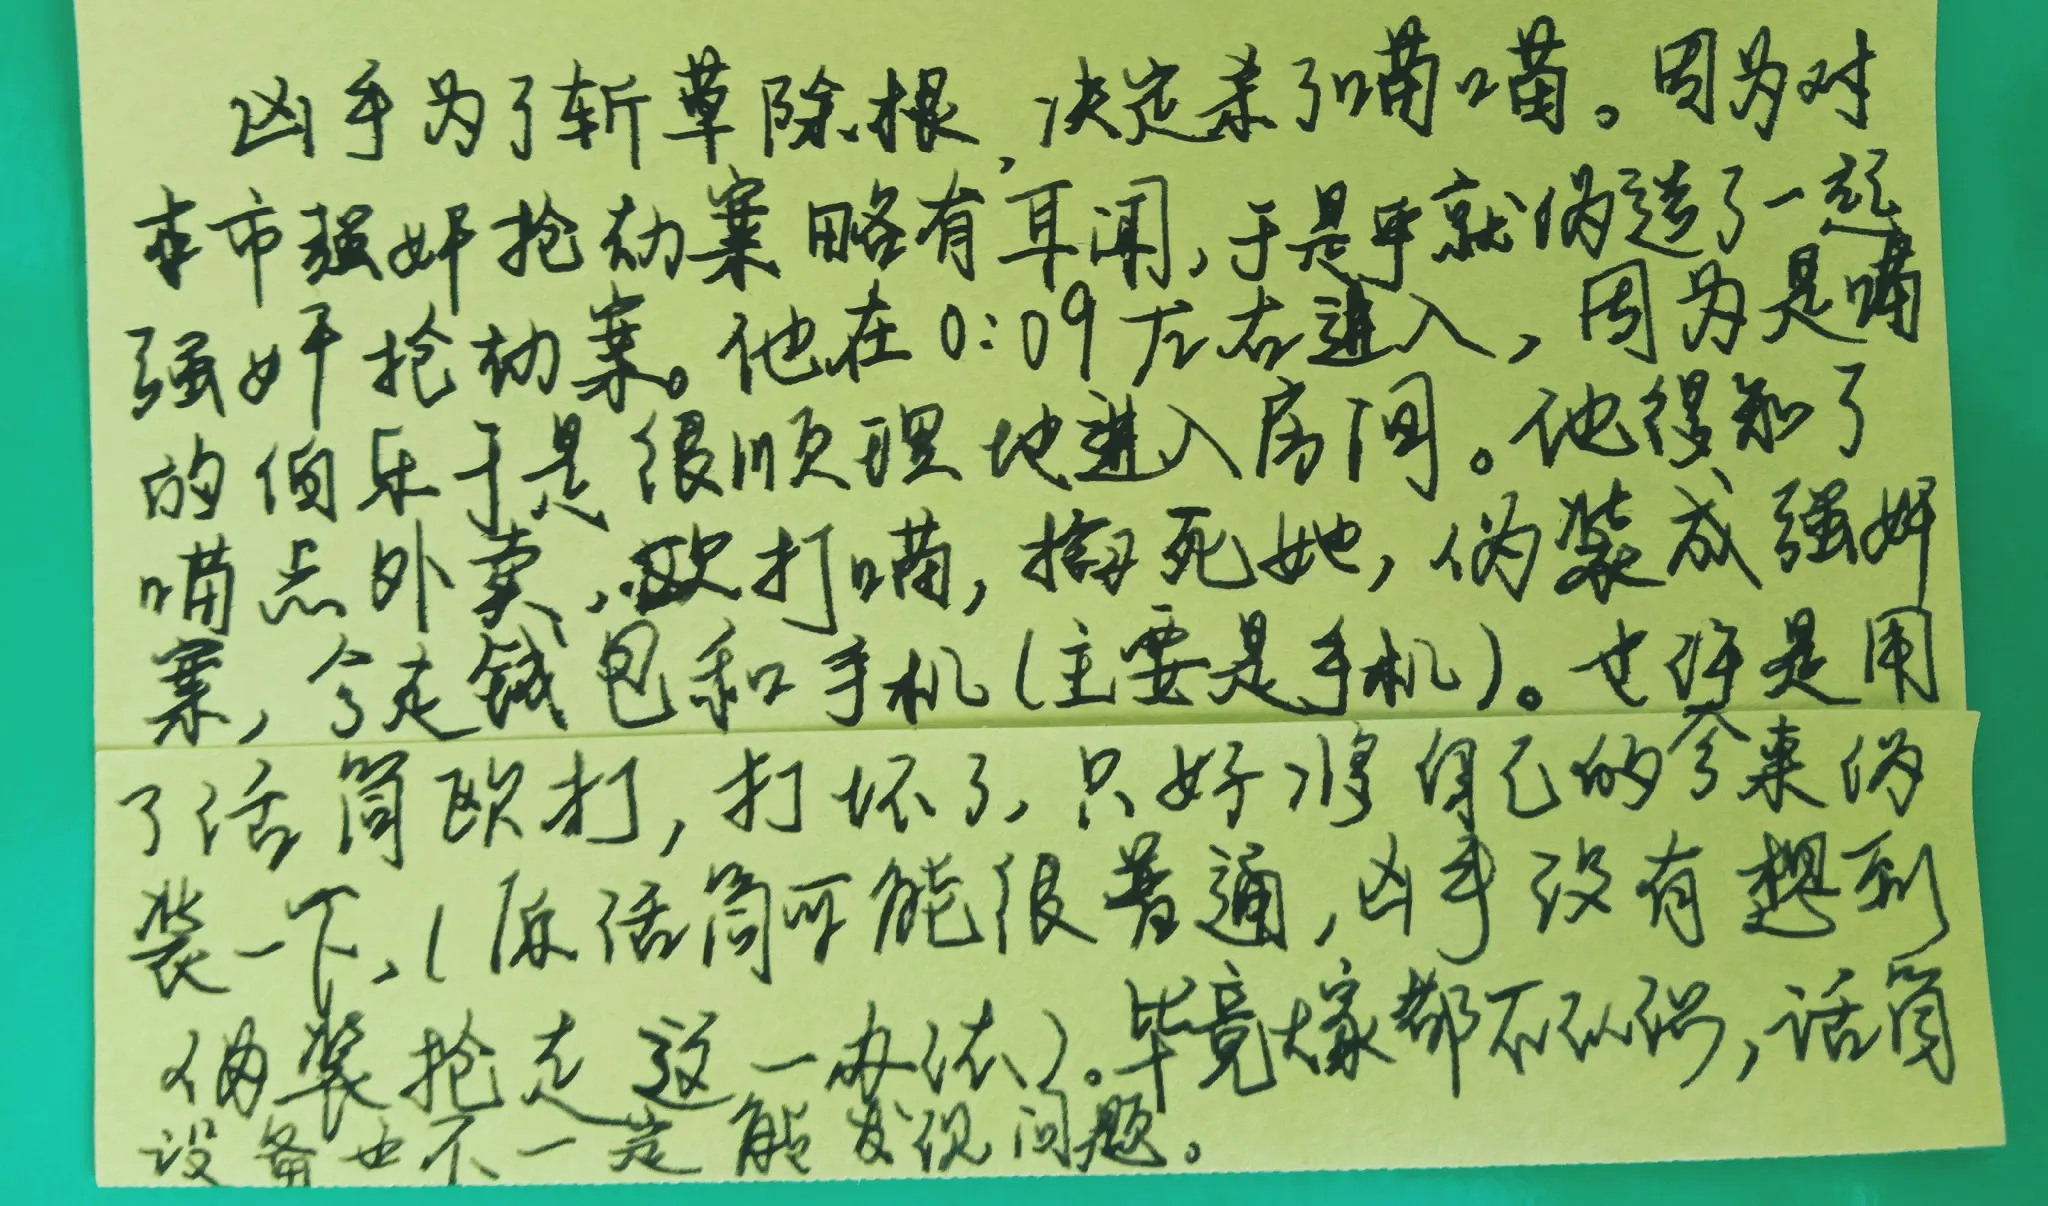 凶手为了斩草除根,决定杀了喵喵。因为对
本市强奸抢劫案略有耳闻,于是乎就伪造了一起
强奸抢劫案。他在0:09左右进入,因为是喵
的伯乐于是很顺理地进入房间。他得知了
喵点外卖,殴打喵,捂死她,伪装成强奸
案,拿走钱包和手机(主要是手机)。也许是用
了话筒殴打,打坏了,只好将自己的拿来伪
装一下,(原话筒可能很普通,凶手没有想到
伪装抢走这一办法)。毕竟大家都不认识,话筒
设备也不一定能发现问题。